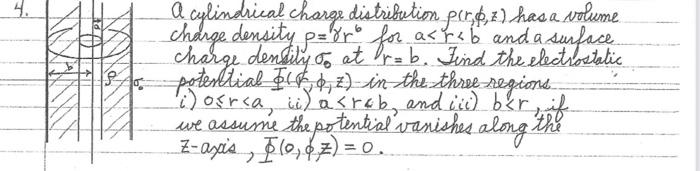 4.
A cylindrical charge distribution ρ(r,ϕ,z) has a volume
charge density ρ=γr⁶ for a<r<b and a surface
charge density σ₀ at r=b. Find the electrostatic
potential Φ(r,ϕ,z) in the three regions
i) 0≤r<a, ii) a<r<b, and iii) b<r, if
we assume the potential vanishes along the
z-axis, Φ(0,ϕ,z)=0.
a
b
ρ
σ₀